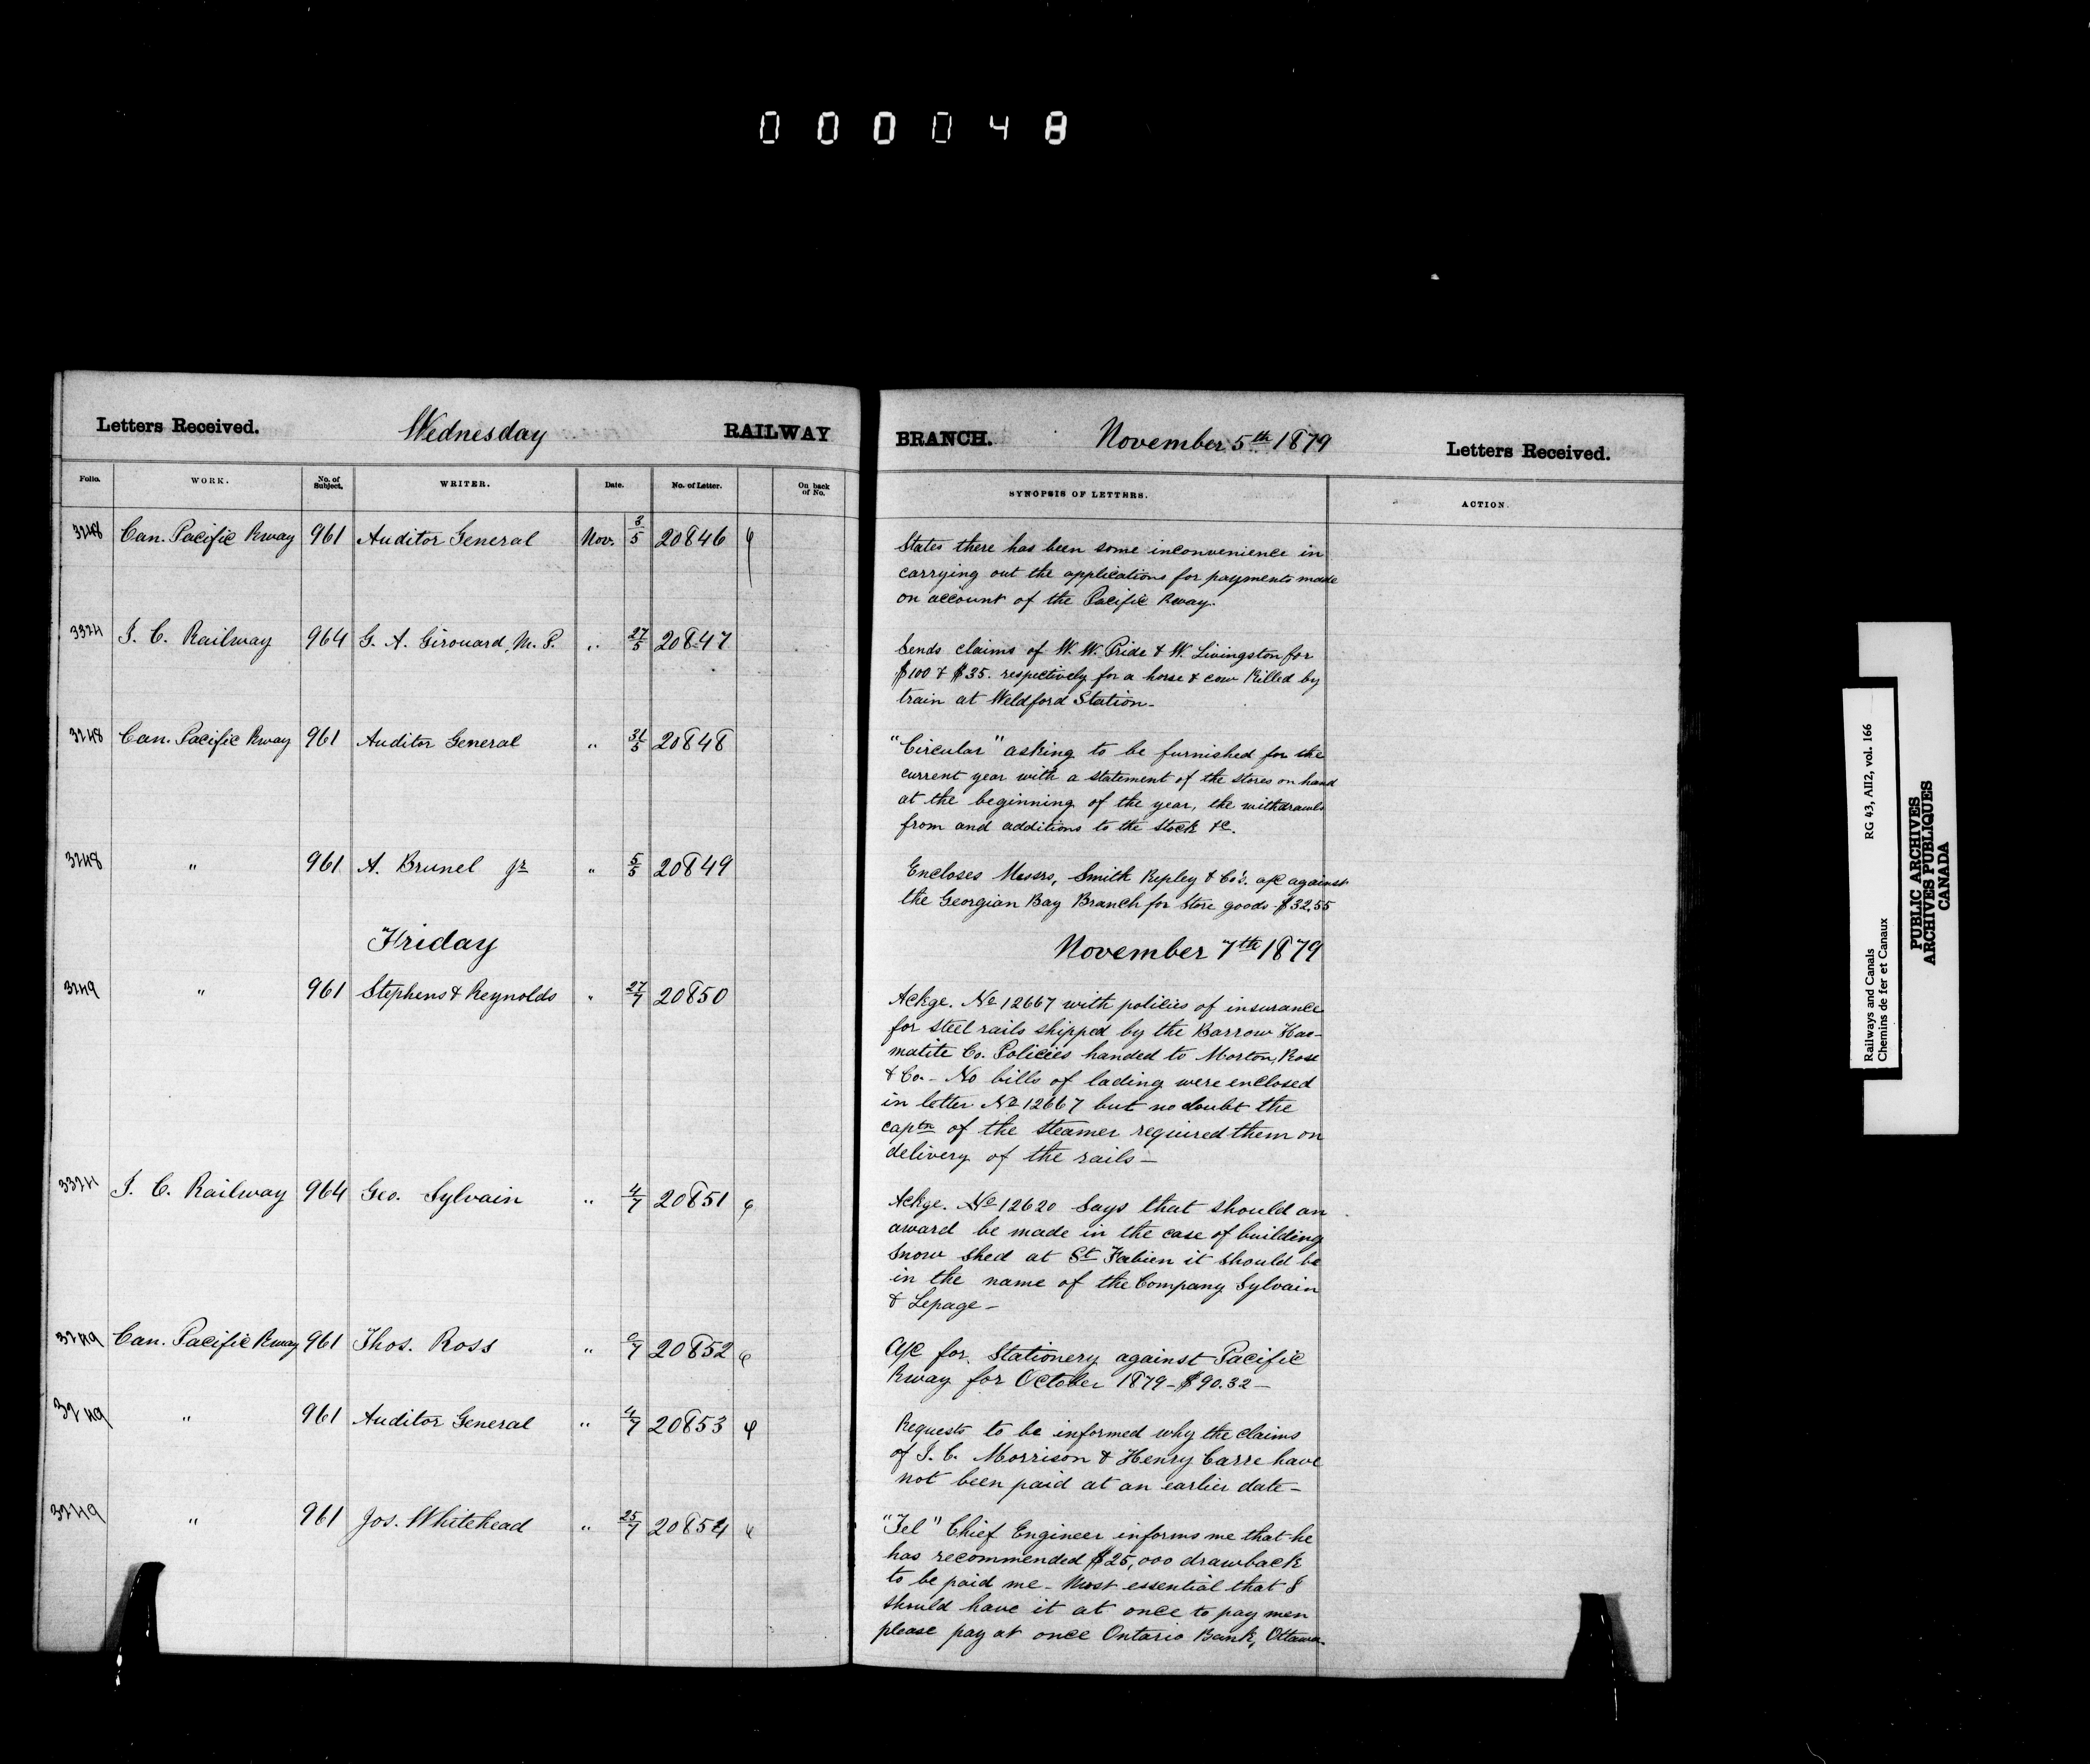 000048
Letters Received. Wednesday RAILWAY
Folio. WORK. No. of Subject. WRITER. Date. No. of Letter. On back of No.
3248 Can. Pacific Rway 961 Auditor General Nov. 3/5 20846
3324 I. C. Railway 964 G. A. Girouard, M. P. " 27/5 20847
3248 Can. Pacific Rway 961 Auditor General " 31/5 20848
3248 " 961 A. Brunel Jr " 5/5 20849
Friday
3249 " 961 Stephens & Reynolds " 27/7 20850
3324 I. C. Railway 964 Geo. Sylvain " 4/7 20851
3249 Can. Pacific Rway 961 Thos. Ross " /7 20852
3249 " 961 Auditor General " 4/7 20853
3249 " 961 Jos. Whitehead " 25/7 20854
BRANCH. November 5th 1879 Letters Received.
SYNOPSIS OF LETTERS. ACTION.
States there has been some inconvenience in
carrying out the applications for payments made
on account of the Pacific Rway.
Sends claims of W. W. Pride & W. Livingston for
$100 & $35. respectively for a horse & cow killed by
train at Weldford Station-
"Circular" asking to be furnished for the
current year with a statement of the stores on hand
at the beginning of the year, the withdrawls
from and additions to the stock &c.
Encloses Messrs, Smith Ripley & Co's. a/c against
the Georgian Bay Branch for store goods-$32,55
November 7th 1879
Ackge. No 12667 with policies of insurance
for steel rails shipped by the Barrow Hae-
matite Co. Policies handed to Morton, Rose
& Co- No bills of lading were enclosed
in letter No 12667 but no doubt the
captn of the steamer required them on
delivery of the rails-
Ackge. No 12620 Says that should an
award be made in the case of building
snow shed at St Fabien it should be
in the name of the Company Sylvain
& Lepage-
A/c for Stationery against Pacific
Rway for October 1879-$90.32-
Requests to be informed why the claims
of J. C. Morrison & Henry Carre have
not been paid at an earlier date-
"Tel" Chief Engineer informs me that he
has recommended $25,000 drawback
to be paid me- Most essential that I
should have it at once to pay men
please pay at once Ontario Bank, Ottawa-
Railways and Canals RG 43, AII2, vol. 166
Chemins de fer et Canaux
PUBLIC ARCHIVES
ARCHIVES PUBLIQUES
CANADA